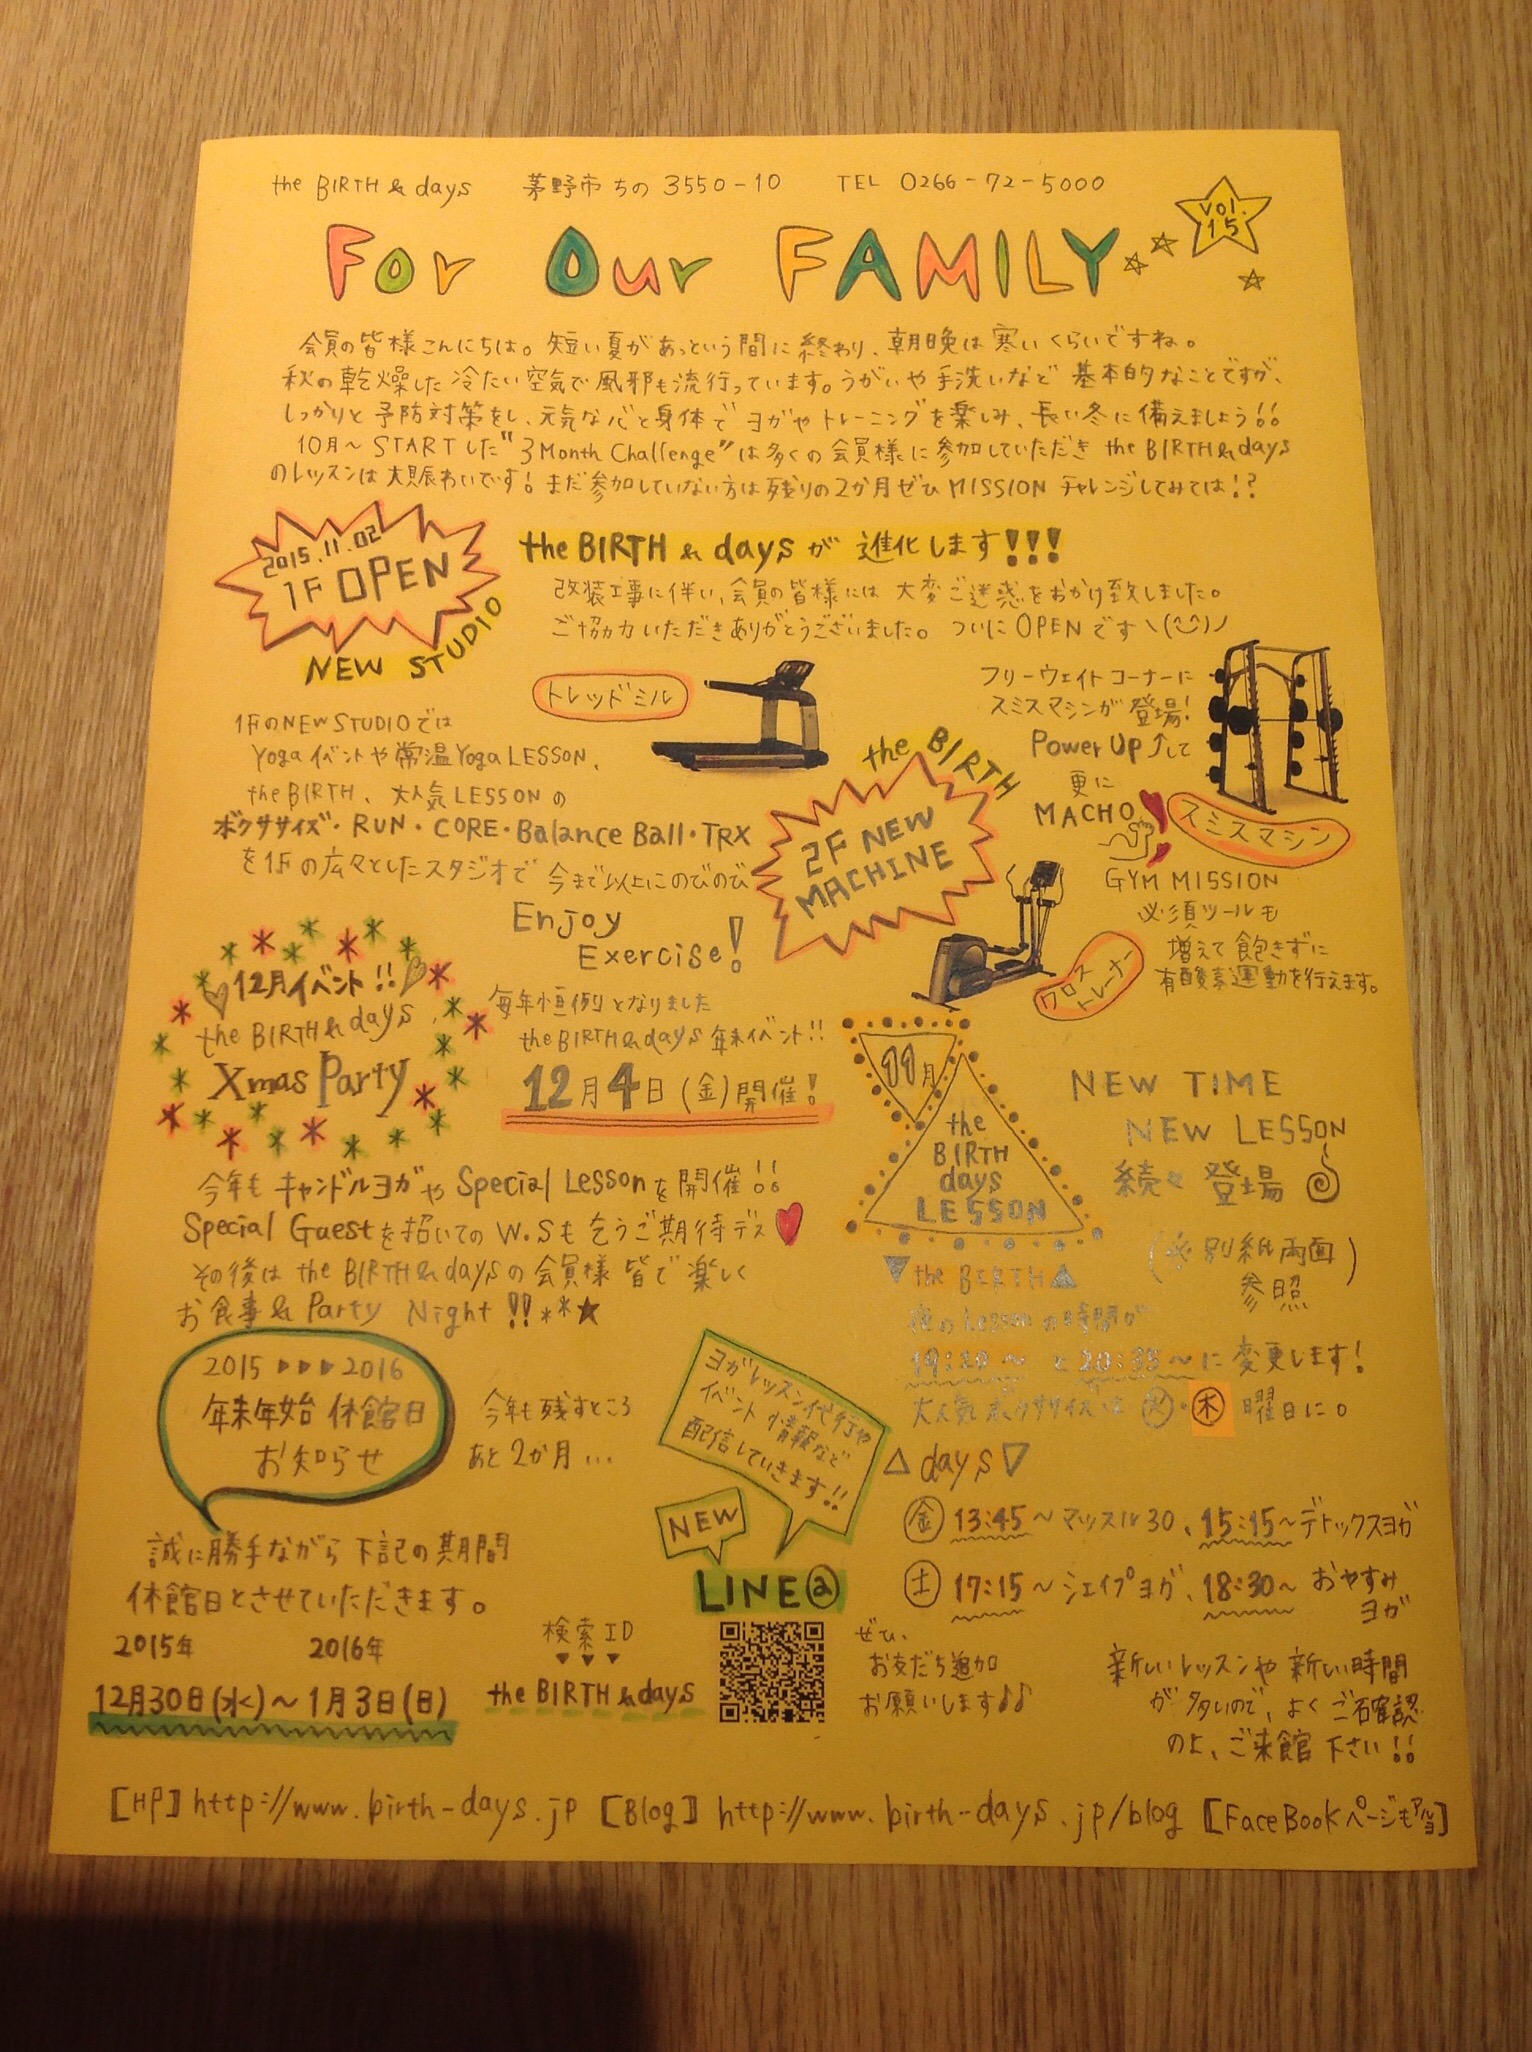 the BIRTH & days 茅野市ちの3550-10 TEL 0266-72-5000
Vol.
15
For Our FAMILY
会員の皆様こんにちは。短い夏があっという間に終わり、朝晩は寒いくらいですね。
秋の乾燥した冷たい空気で風邪も流行っています。うがいや手洗いなど基本的なことですが、
しっかりと予防対策をし、元気な心と身体でヨガやトレーニングを楽しみ、長い冬に備えましょう!!
10月〜STARTした"3Month Challenge"は多くの会員様に参加していただきthe BIRTH&days
のレッスンは大賑わいです!まだ参加していない方は残りの2か月ぜひMISSIONチャレンジしてみては!?
2015.11.02
1F OPEN
NEW STUDIO
the BIRTH & daysが進化します!!!
改装工事に伴い、会員の皆様には大変ご迷惑をおかけ致しました。
ご協力いただきありがとうございました。ついにOPENです\(^‿^)ノ
1FのNEW STUDIOでは
Yogaイベントや常温Yoga LESSON、
the BIRTH、大人気LESSONの
ボクササイズ・RUN・CORE・Balance Ball・TRX
を1Fの広々としたスタジオで今まで以上にのびのび
Enjoy
Exercise!
トレッドミル
the BIRTH
2F NEW
MACHINE
フリーウェイトコーナーに
スミスマシンが登場!
Power Up↑して
更に
MACHO
スミスマシン
GYM MISSION
必須ツールも
増えて飽きずに
有酸素運動を行えます。
クロス
トレーナー
12月イベント!!
the BIRTH & days
Xmas Party
毎年恒例となりました
the BIRTH&days年末イベント!!
12月4日(金)開催!
今年もキャンドルヨガやSpecial Lessonを開催!!
Special Guestを招いてのW.Sも乞うご期待デス
その後はthe BIRTH&daysの会員様皆で楽しく
お食事&Party Night!!**★
11月
the
BIRTH
days
LESSON
NEW TIME
NEW LESSON
続々登場
(※別紙両面
参照)
▼the BIRTH▲
夜のLessonの時間が
19:20〜と20:35〜に変更します!
大人気ボクササイズは火・木曜日に。
△days▽
金13:45〜マッスル30、15:15〜デトックスヨガ
土17:15〜シェイプヨガ、18:30〜おやすみ
ヨガ
新しいレッスンや新しい時間
が多いので、よくご確認
の上、ご来館下さい!!
2015▷▷▷2016
年末年始休館日
お知らせ
今年も残すところ
あと2か月...
誠に勝手ながら下記の期間
休館日とさせていただきます。
2015年 2016年
12月30日(水)〜1月3日(日)
ヨガレッスン代行や
イベント情報など
配信していきます!!
NEW
LINE@
検索ID
▼▼▼
the BIRTH&days
ぜひ、
お友だち追加
お願いします♪♪
[HP]http://www.birth-days.jp [Blog] http://www.birth-days.jp/blog [FaceBookページもアルヨ]